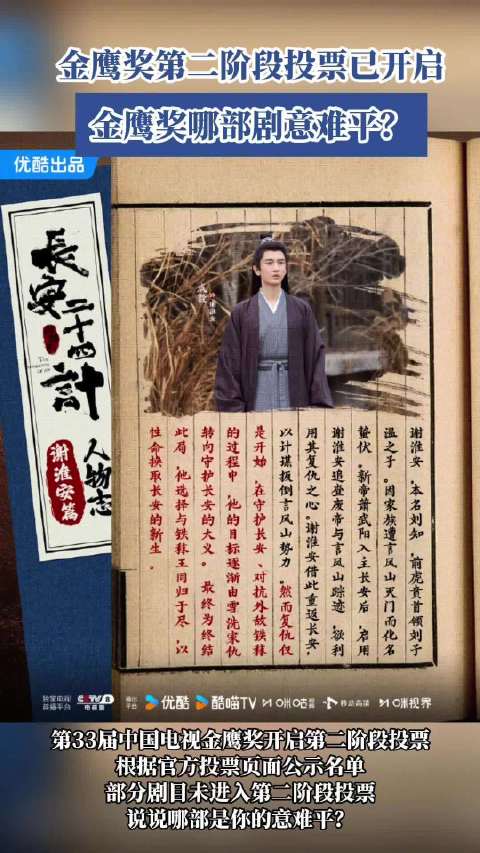 金鹰奖第二阶段投票已开启
金鹰奖哪部剧意难平?
优酷出品
長安二十四計
人物志
谢淮安篇
成毅
谢淮安
谢淮安,本名刘知,前虎贲首领刘子
温之子。因家族遭言凤山灭门而化名
蛰伏。新帝萧武阳入主长安后,启用
谢淮安追查废帝与言凤山踪迹,欲利
用其复仇之心。谢淮安借此重返长安,
以计谋扳倒言凤山势力,然而复仇仅
是开始,在守护长安、对抗外敌铁秣
的过程中,他的目标逐渐由雪洗家仇
转向守护长安的大义。最终为终结
此局,他选择与铁秣王同归于尽,以
性命换取长安的新生。
CCTV 8
电视剧
播出平台
优酷
酷喵TV
咪咕视频
移动高清
咪视界
第33届中国电视金鹰奖开启第二阶段投票
根据官方投票页面公示名单
部分剧目未进入第二阶段投票
说说哪部是你的意难平?